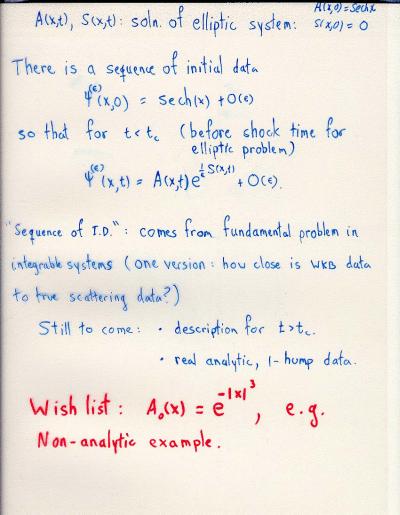 A(x,t), S(x,t): soln. of elliptic system: A(x,0) = sech x
S(x,0) = 0
There is a sequence of initial data
ψ^(ε)(x,0) = sech(x) + O(ε)
so that for t < t_c (before shock time for
elliptic problem)
ψ^(ε)(x,t) = A(x,t)e^{i/ε S(x,t)} + O(ε).
"Sequence of I.D.": comes from fundamental problem in
integrable systems (one version: how close is WKB data
to true scattering data?)
Still to come: · description for t > t_c.
· real analytic, 1-hump data.
Wish list: A_0(x) = e^{-|x|^3}, e.g.
Non-analytic example.